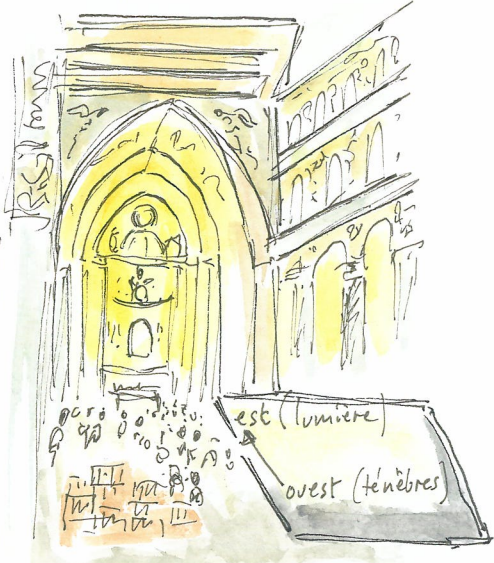 est (lumière)
ouest (ténèbres)